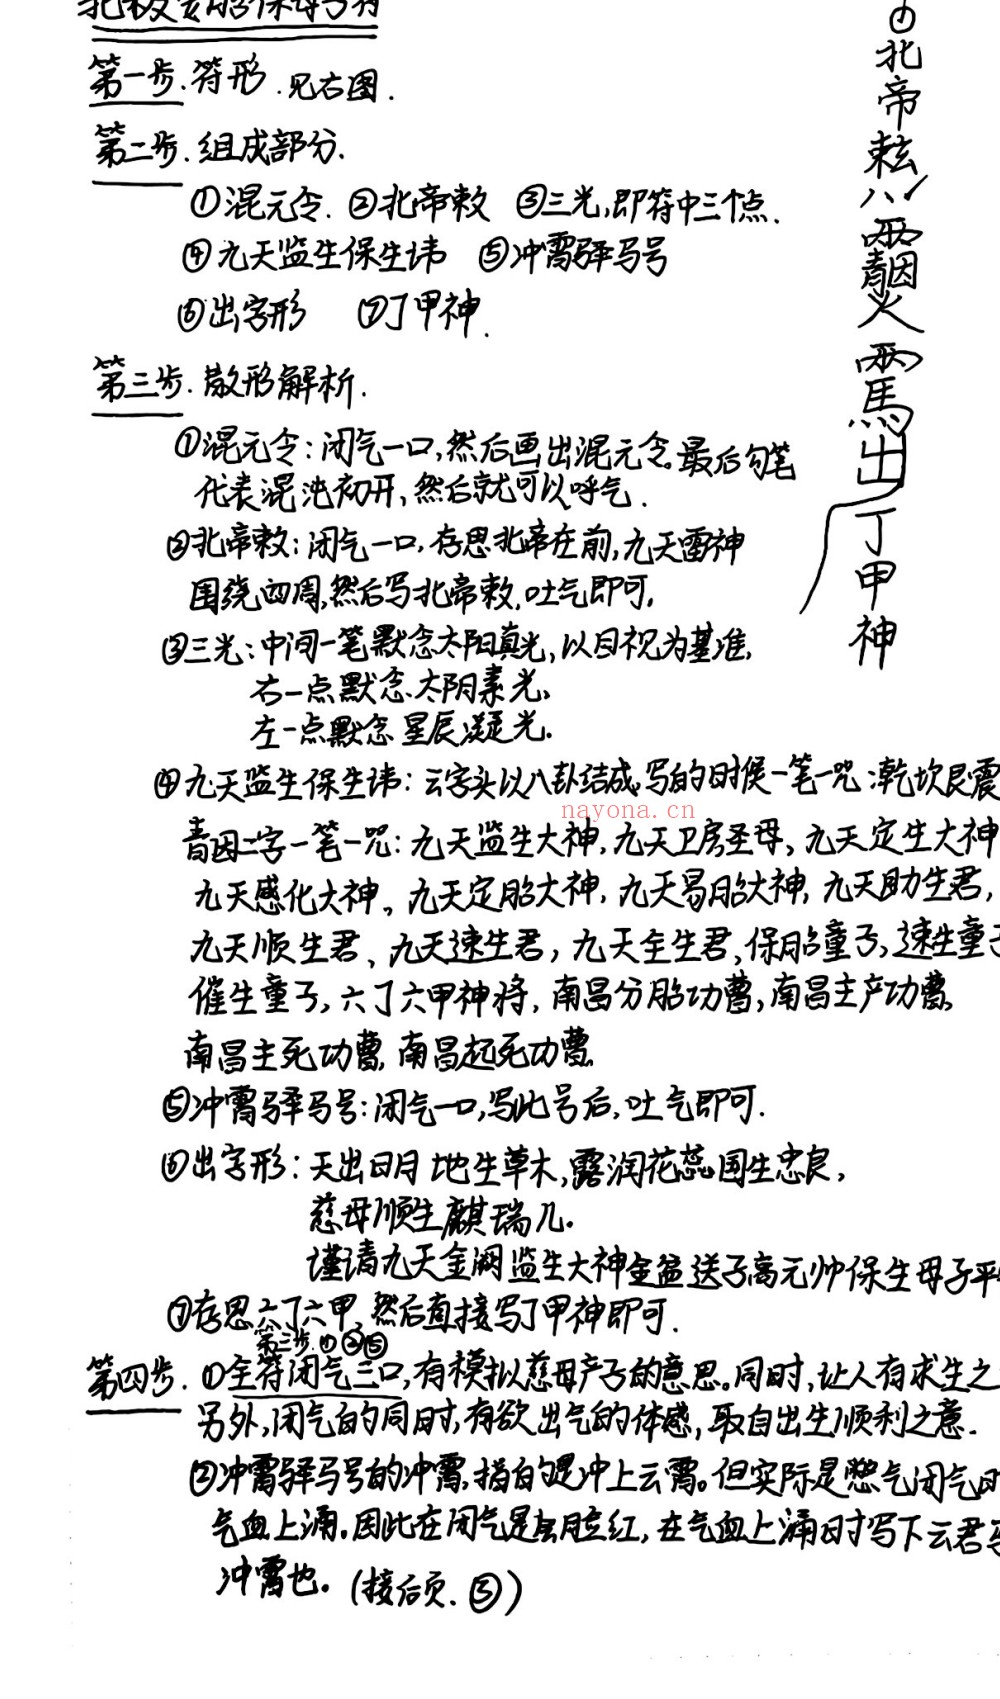 第一步.符形.见右图.
第二步.组成部分.
①混元令.②北帝敕 ③三光,即符中三个点.
④九天监生保生讳 ⑤冲霄驿马号
⑥出字形 ⑦丁甲神.
第三步.散形解析.
①混元令:闭气一口,然后画出混元令。最后勾笔
代表混沌初开,然后就可以呼气.
②北帝敕:闭气一口,存思北帝在前,九天雷神
围绕四周,然后写北帝敕,吐气即可.
③三光:中间一笔默念太阳真光,以目视为基准,
右一点默念太阴素光,
左一点默念星辰凝光.
④九天监生保生讳:云字头以八卦结成,写的时候一笔一咒:乾坎艮震
青因二字一笔一咒:九天监生大神,九天卫房圣母,九天定生大神
九天感化大神,九天定胎大神,九天易胎大神,九天助生君,
九天顺生君,九天速生君,九天全生君,保胎童子,速生童子
催生童子,六丁六甲神将,南昌分胎功曹,南昌主产功曹,
南昌主死功曹,南昌起死功曹,
⑤冲霄驿马号:闭气一口,写此号后,吐气即可.
⑥出字形:天出日月地生草木,露润花蕊国生忠良,
慈母顺生麒瑞儿.
谨请九天金阙监生大神金盆送子高元帅保生母子平
⑦存思六丁六甲,然后直接写丁甲神即可.
第三步.①②⑤
第四步.①全符闭气三口,有模拟慈母产子的意思。同时,让人有求生之
另外,闭气的同时,有欲出气的体感,取自出生顺利之意.
②冲霄驿马号的冲霄,指的是冲上云霄。但实际是憋气闭气时
气血上涌。因此在闭气是会脸红,在气血上涌时写下云君马
冲霄也。(接后页.③)
①北帝敕
出丁甲神
nayona.cn